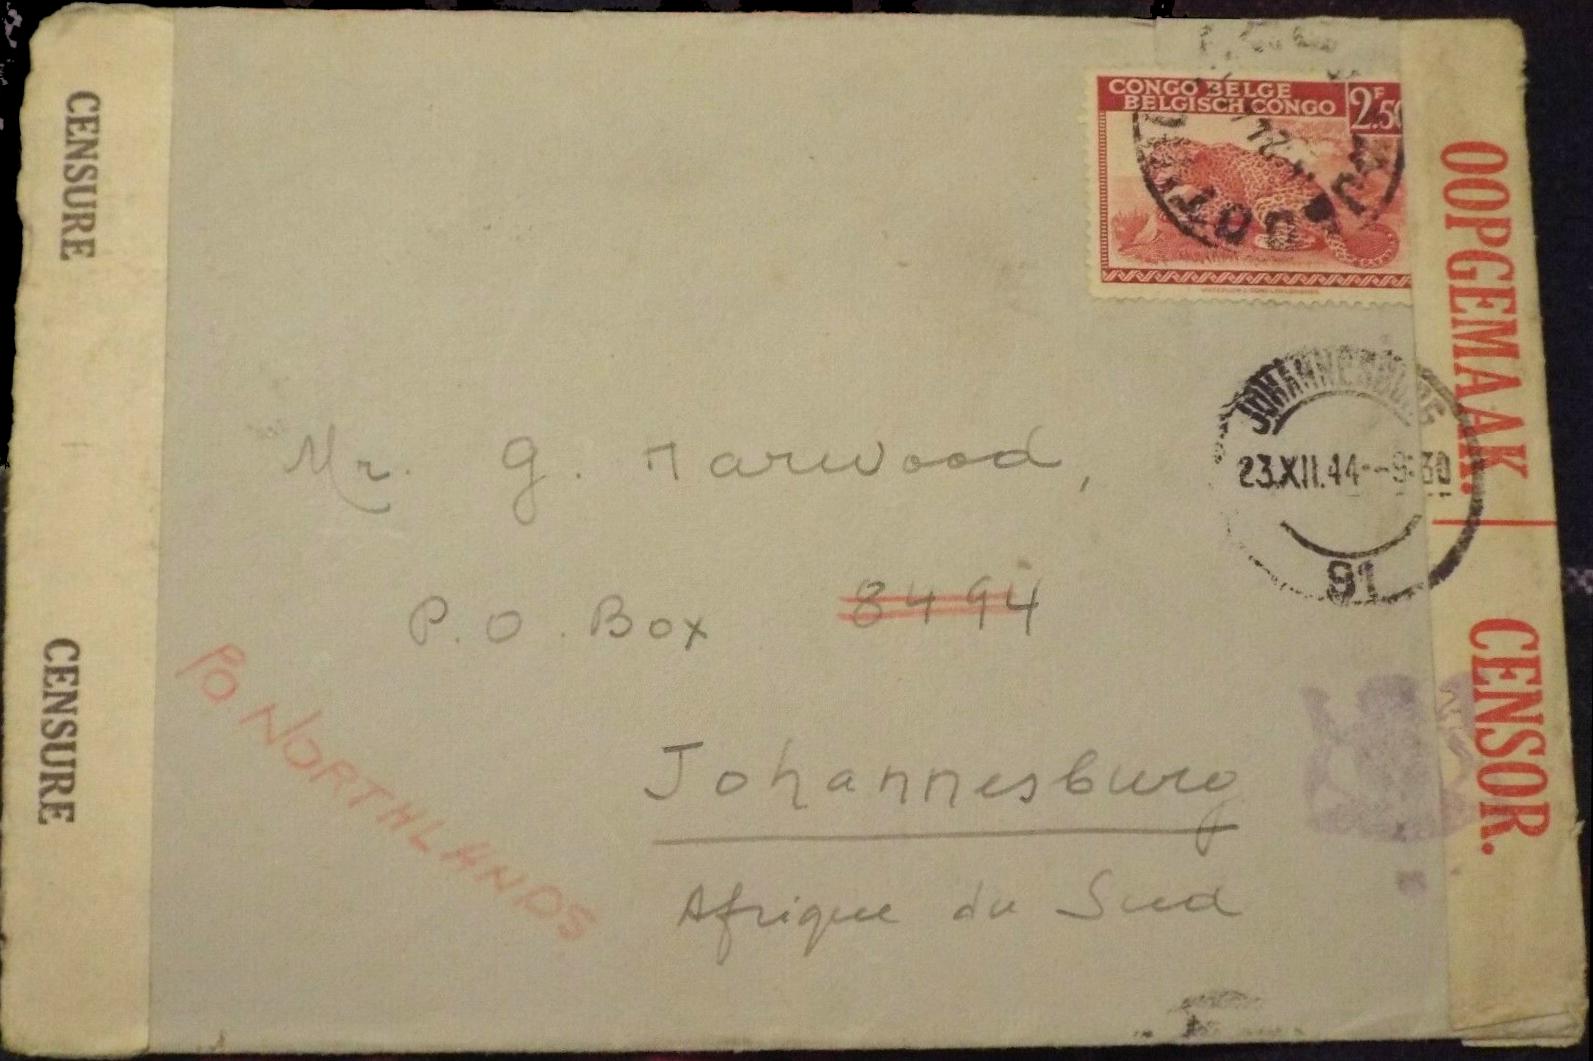 CENSURE
CENSURE
CONGO BELGE
BELGISCH CONGO
2F.50
JOHANNESBURG
23.XII.44--9:30
91
Mr. G. Marwood,
P.O. Box 8494
Johannesburg
Afrique du Sud
PO NORTHLANDS
OOPGEMAAK.
CENSOR.